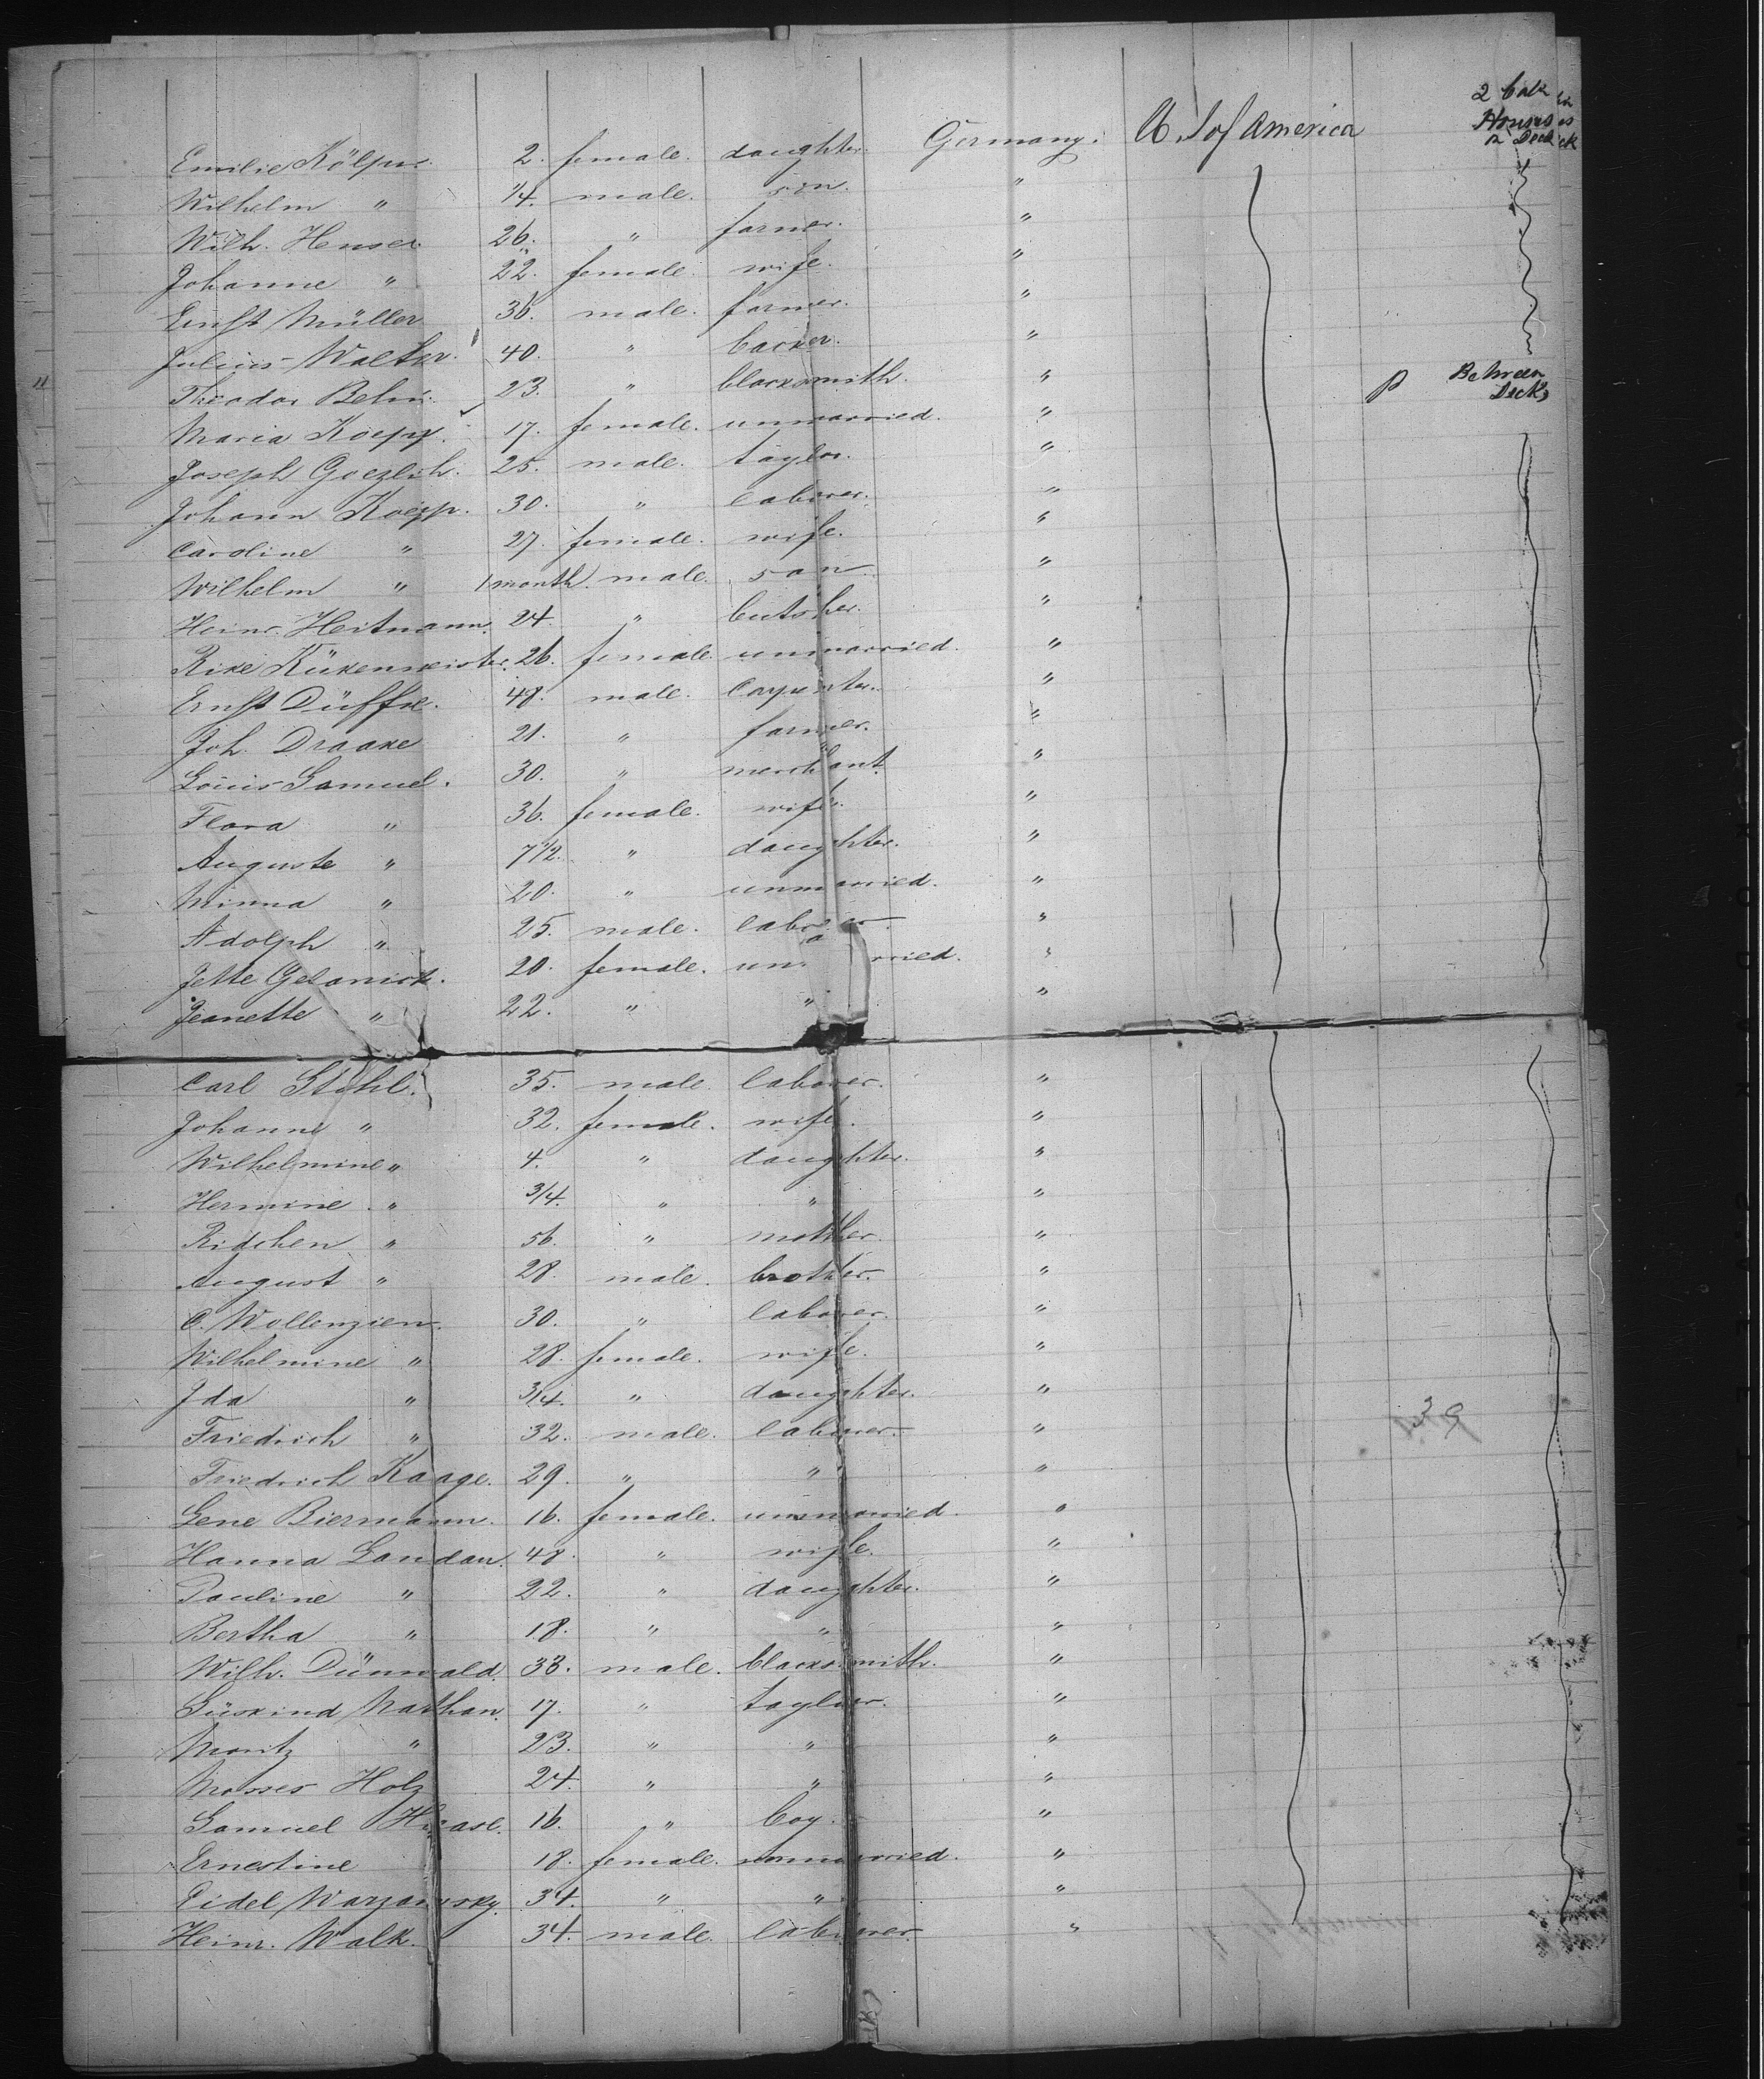 2 Cab
Houses
on Deck
Emilie Kölpin. 2. female. daughter. Germany. U. S of America
Wilhelm " 1/4. male. son. "
Wilh. Henser. 26. " farmer. "
Johanne " 22. female. wife. "
Ernst Müller 36. male. farmer. "
Julius Walter. 40. " backer. "
Theodor Behm. 23. " blacksmith. " Between Deck,
Maria Koepp. 17. female. unmarried. "
Joseph Goezlich. 25. male. taylor. "
Johann Koepp. 30. " laborer. "
Caroline " 27. female. wife. "
Wilhelm " 1 month. male. son. "
Heinr. Heitmann. 24. " butcher. "
Rike Kükenmeister. 26. female. unmarried. "
Ernst Düffke. 48. male. carpenter. "
Joh. Draake 21. " farmer. "
Louis Samuel. 30. " merchant. "
Flora " 36. female. wife. "
Auguste " 7 1/2. " daughter. "
Minna " 20. " unmarried. "
Adolph " 25. male. laborer. "
Jette Gelanick. 20. female. un ried. "
Jeanette " 22. " " "
Carl Stehl. 35. male. laborer. "
Johanne " 32. female. wife. "
Wilhelmine " 4. " daughter. "
Hermine " 3/4. " " "
Ridchen " 56. " mother. "
August " 28. male. brother. "
C. Wollenzien. 30. " laborer. "
Wilhelmine " 28. female. wife. "
Ida " 3/4. " daughter. "
Friedrich " 32. male. laborer. "
Friedrich Kaage. 29. " " "
Lene Biermann. 16. female. unmarried. "
Hanna Landau. 48. " wife. "
Pauline " 22. " daughter. "
Bertha " 18. " " "
Wilh. Dünwald. 33. male. blacksmith. "
Süskind Nathan. 17. " taylor. "
Moritz " 23. " " "
Mosses Holz 24. " " "
Samuel Haase. 16. " boy. "
Ernestine 18. female. unmarried. "
Eidel Warzawsky. 34. " " "
Heinr. Walk. 34. male. laborer. "